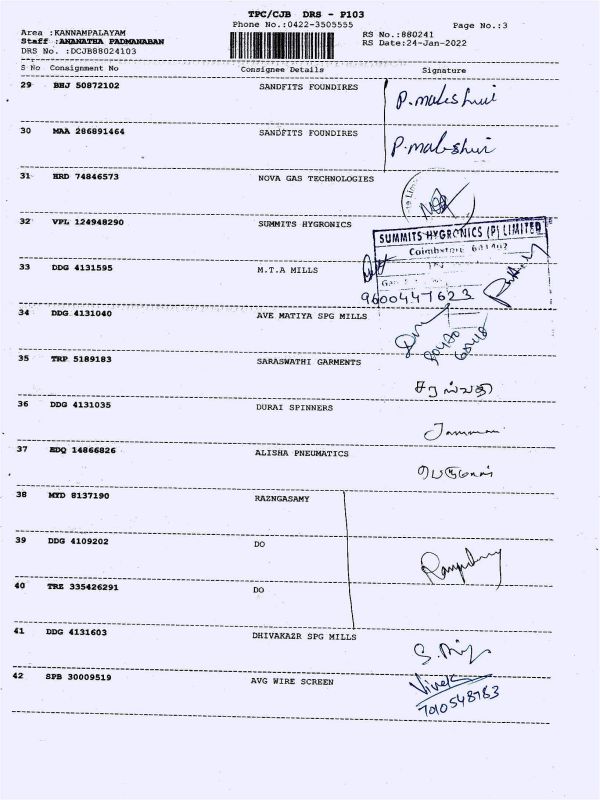 TPC/CJB DRS - P103
Phone No.:0422-3505555
Page No.:3
Area :KANNAMPALAYAM
RS No.:880241
Staff :ANANATHA PADMANABAN
RS Date:24-Jan-2022
DRS No. :DCJB88024103
S No Consignment No Consignee Details Signature
29 BHJ 50872102 SANDFITS FOUNDIRES
30 MAA 286891464 SANDFITS FOUNDIRES
31 HRD 74846573 NOVA GAS TECHNOLOGIES
32 VPL 124948290 SUMMITS HYGRONICS
SUMMITS HYGRONICS (P) LIMITED
Coimbatore
33 DDG 4131595 M.T.A MILLS
9600447623
34 DDG 4131040 AVE MATIYA SPG MILLS
35 TRP 5189183 SARASWATHI GARMENTS
சரஸ்வதி
36 DDG 4131035 DURAI SPINNERS
37 EDQ 14866826 ALISHA PNEUMATICS
பெருமாள்
38 MYD 8137190 RAZNGASAMY
39 DDG 4109202 DO
40 TRE 335426291 DO
41 DDG 4131603 DHIVAKAZR SPG MILLS
42 SPB 30009519 AVG WIRE SCREEN
Vivek
7010548783